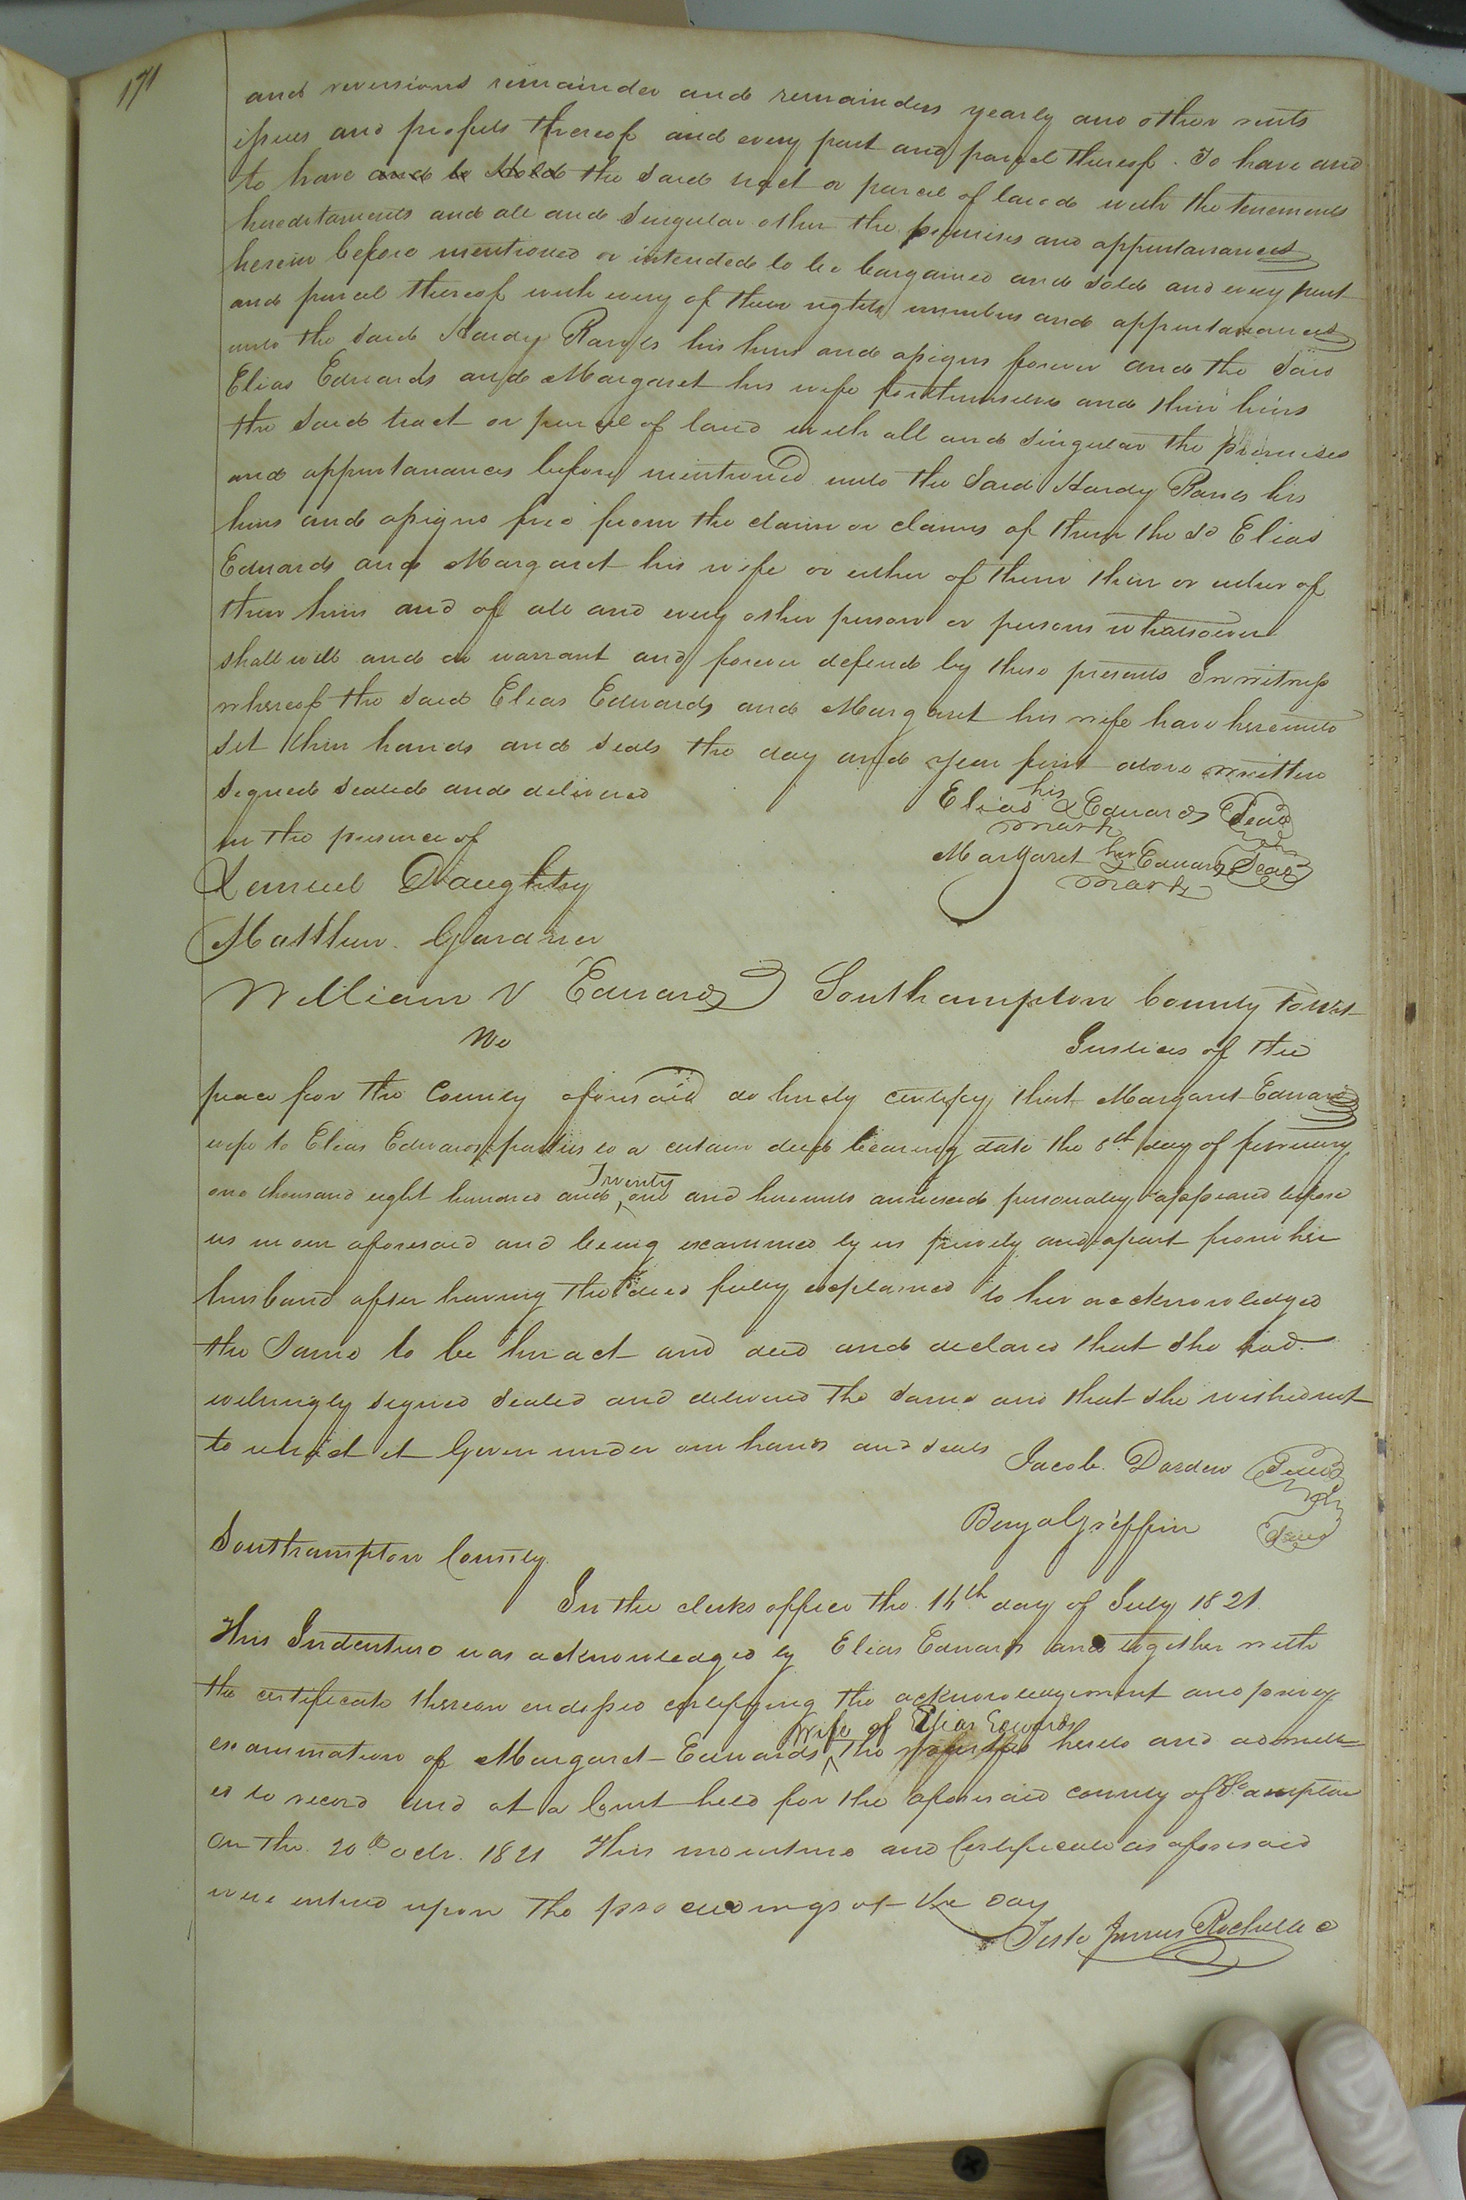 171
and reversions remainder and remainders yearly and other rents
issues and profits thereof and every part and parcel thereof. To have and
to have and to Hold the said tract or parcel of land with the tenements
hereditaments and all and singular other the premises and appurtanances
herein before mentioned or intended to be bargained and sold and every part
and parcel thereof with every of their rights members and appurtanances
unto the said Hardy Rawls his heirs and assigns forever and the said
Elias Edwards and Margaret his wife for themselves and their heirs
the said tract or parcel of land with all and singular the premises
and appurtanances before mentioned unto the said Hardy Rawls his
heirs and assigns free from the claim or claims of them the sd Elias
Edwards and Margaret his wife or either of them their or either of
their heirs and of all and every other person or persons whatsoever
shall will and do warrant and forever defend by these presents In witness
whereof the said Elias Edwards and Margaret his wife have hereunto
set their hands and seals the day and year first above written
Signed sealed and delivered
in the presence of
Elias his X Edwards Seal
mark
Margaret her X Edwards Seal
mark
Lemuel Daughtry
Matthew Gardner
William V Edwards Southampton County towit
We Justices of the
peace for the County aforesaid do hereby certify that Margaret Edwards
wife to Elias Edwards parties to a certain deed bearing date the 8th day of february
one thousand eight hundred and Twenty one and hereunto annexed personally appeared before
us in our aforesaid and being examined by us privily and apart from her
husband after having the deed fully explained to her acknowledged
the same to be her act and deed and declared that she had
willingly signed sealed and delivered the same and that she wished not
to retract it Given under our hands and seals Jacob Darden Seal
Benja Griffin Seal
Southampton County
In the clerks office the 16th day of July 1821
This Indenture was acknowledged by Elias Edwards and together with
the certificate thereon endorsed certifying the acknowledgement and privy
examination of Margaret Edwards wife of Elias Edwards the hereto and admitt=
ed to record and at a Court held for the aforesaid county of So.ampton
On the 20th octr. 1821 This indenture and Certificate as aforesaid
were entered upon the proceedings of the day
Teste James Rochelle c